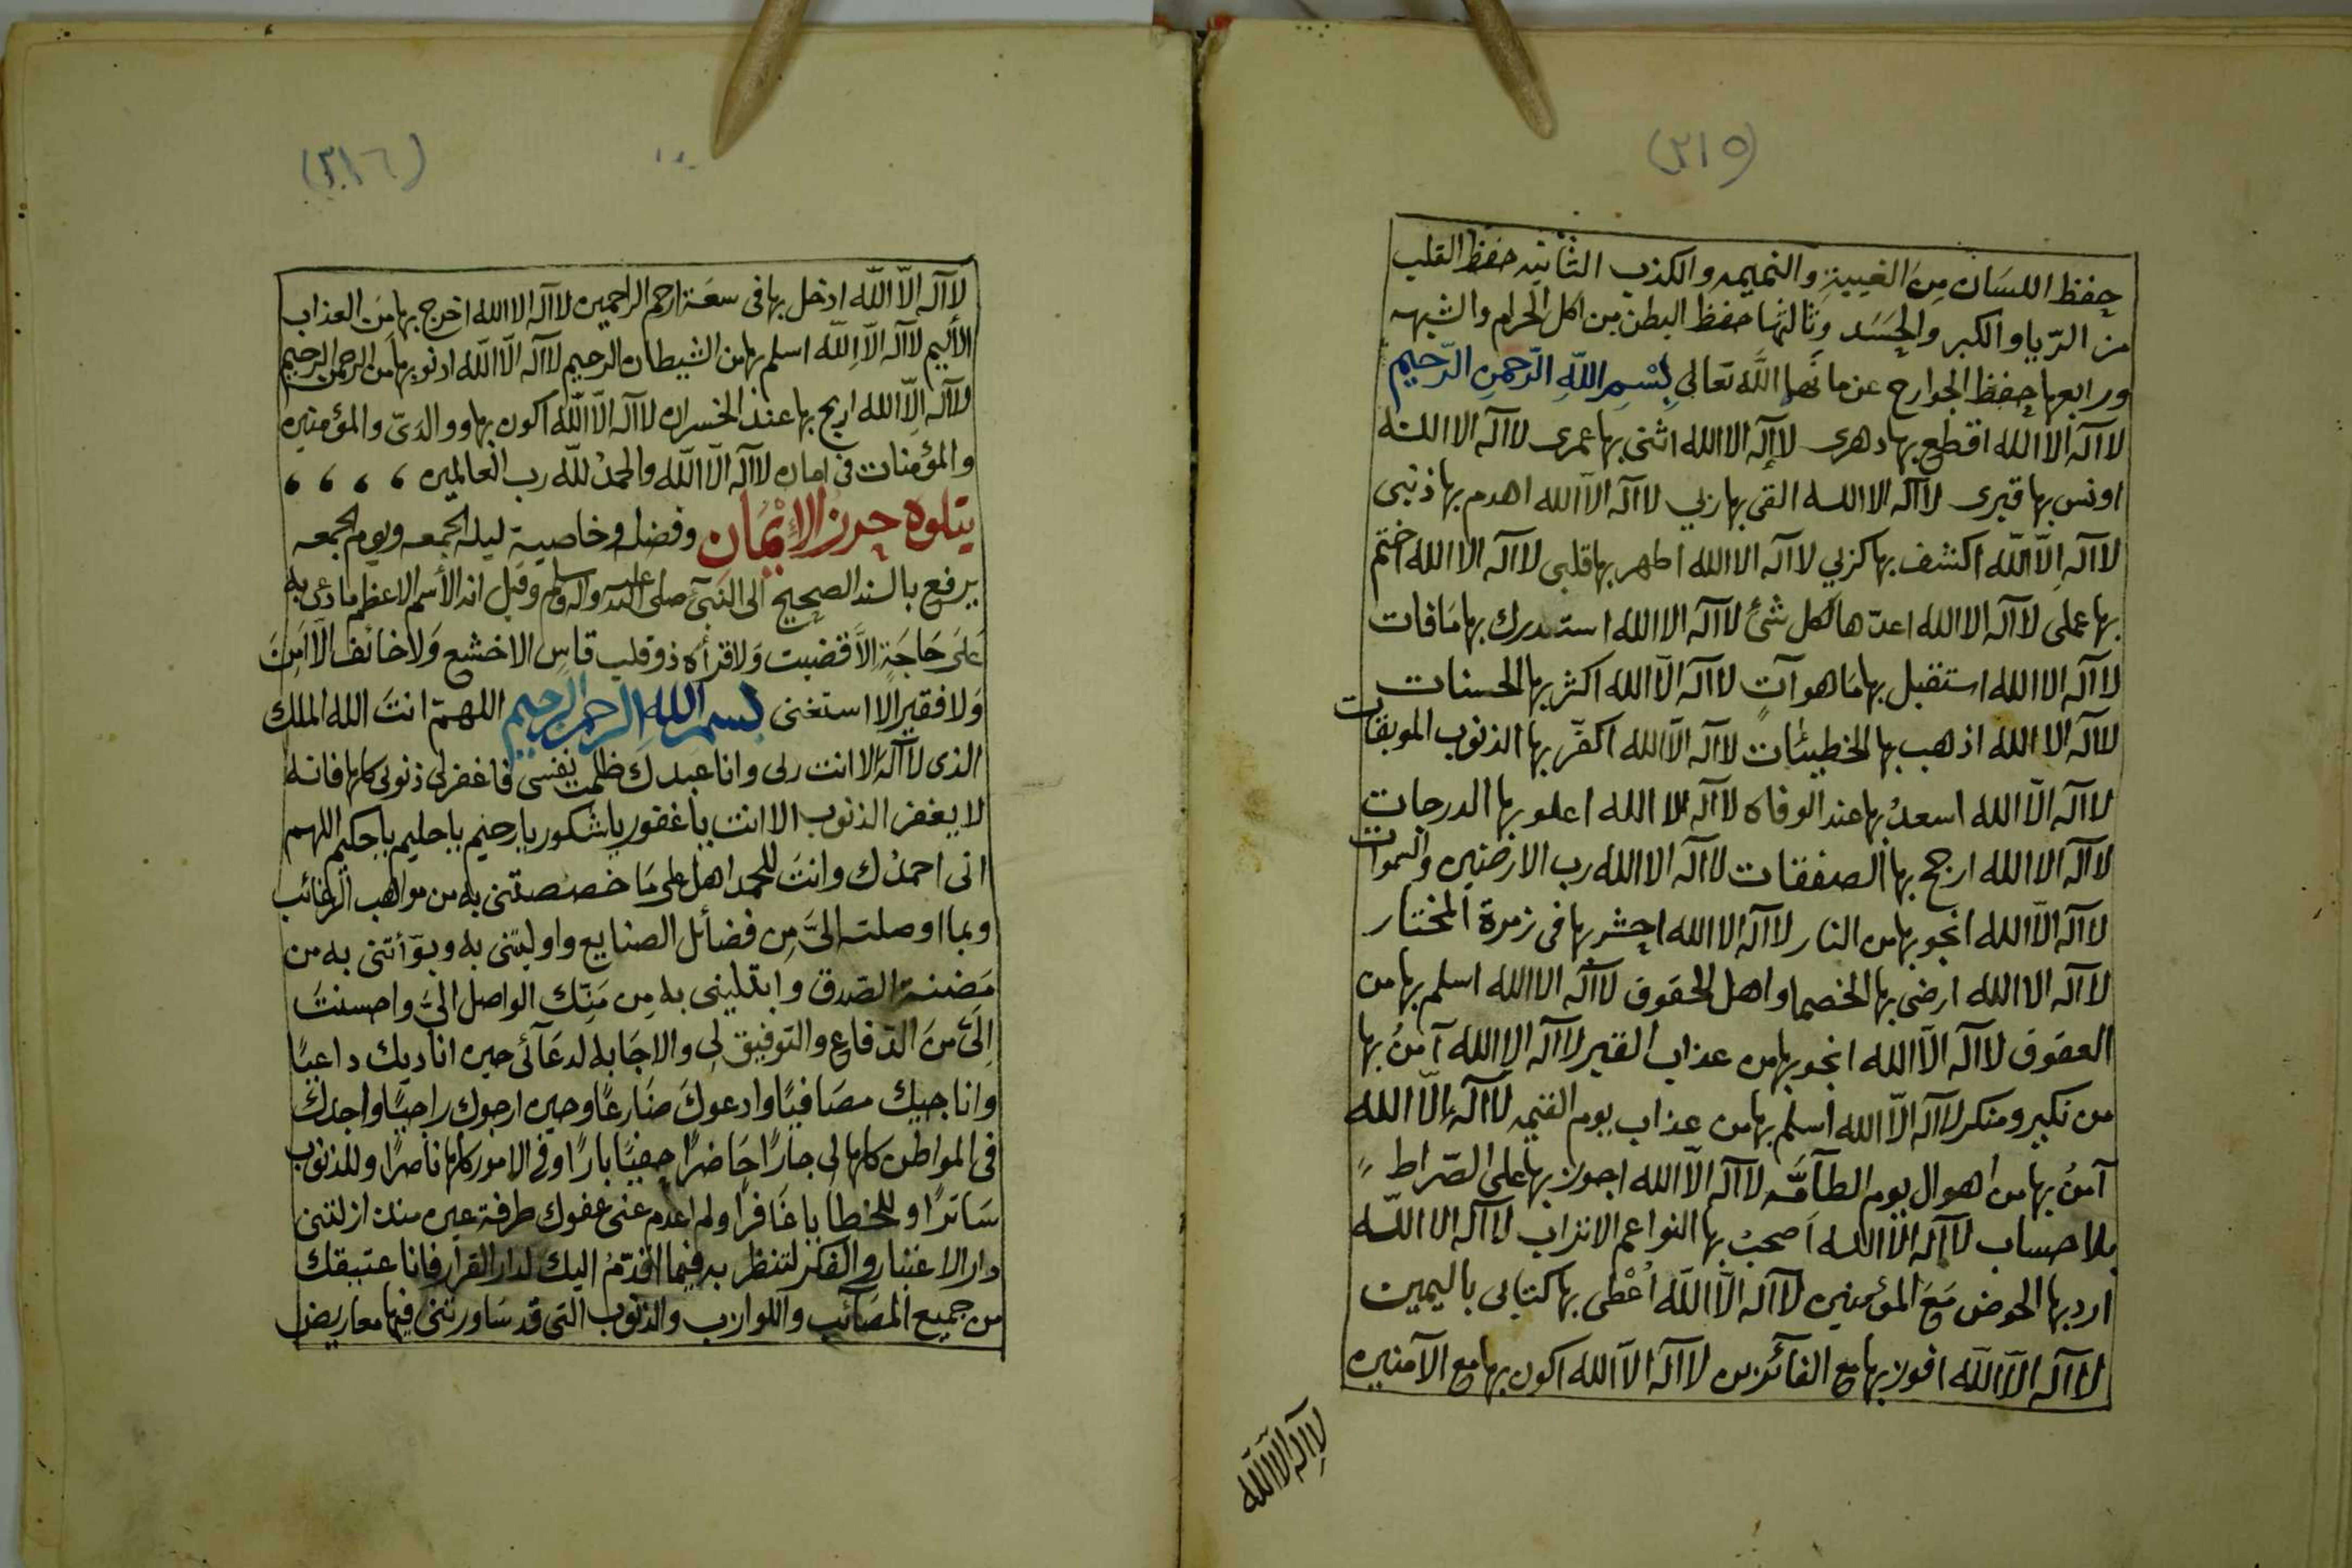 (٢١٥)
حفظ اللسان مِنَ الغيبةِ والنميمه والكذب الثانيه حفظ القلب
من الرّيا والكبر والحَسَد وثالثها حفظ البطن من اكل الحرام والشبهه
ورابعها حفظ الجوارح عن ما نَهَا اللَّه تعالى بِسْمِ اللّهِ الرّحمنِ الرّحيم
لاآله الاالله اقطع بها دهرى لاإله الاالله اثنى بها عمرى لاآله الاالله
اونس بها قبرى لاآله الاالله القى بها ربي لاآله الاّالله اهدم بها ذنبى
لاآله اِلاّاللّه اكشف بها كربي لاآله الاالله اطهر بها قلبى لاآله الاالله اختم
بها عملى لاآله الاالله اعدّها لكل شئ لاآله الاالله استدرك بها مَافات
لاآله الاالله استقبل بها مَاهوآتٍ لاآله الاّالله اكثر بها الحسنات
لاآله الاالله اذهب بها الخطيئات لاآله الاّالله اكفّر بها الذنوب الموبقات
لاآله الاّالله اسعدُ بها عند الوفاه لاآله الاالله اعلو بها الدرجات
لاآله الاالله ارجح بها الصفقات لاآله الاالله رب الارضين والسموات
لاآله الاّالله انجو بها من النار لاآله الاالله احشر بها فى زمرة المختار
لاآله الاالله ارضى بها الخصما واهل الحقوق لاآله الاالله اسلم بها من
العقوق لاآله الاّالله انجو بها من عذاب القبر لاآله الاالله آمنُ بها
من نكير ومنكر لاآله الاّالله اسلم بها من عذاب يوم القيمه لاآله اِلاّالله
آمنُ بها من اهوال يوم الطآمَّه لاآله الاّالله اجوز بها على الصّراط
بلاحساب لاآله الاّالله اَصحبُ بها النواعم الاتراب لاآله الااللّه
ارد بها الحوض مَعَ المؤمنين لاآله الاَّاللّه اُعْطى بها كتابى باليمين
لاآله الاّاللّه افوز بها مع الفائزين لاآله الاّالله اكون بها مع الآمنين
لاآله الاّاللّه
(٢١٦)
لاآله الاّاللّه ادخل بها فى سعَة ارحم الراحمين لاآله الاالله اخرج بها مِنَ العذاب
الأليم لاآله الاّاللّه اسلم بها من الشيطان الرجيم لاآله الاّاللّه ادنو بها من الرحمن الرحيم
لاآله الاّالله اربح بها عند الخسران لاآله الاّاللّه اكون بها ووالدَىّ والمؤمنين
والمؤمنات فى امان لاآله الاّاللّه والحمدُ للّه رب العالمين ، ، ، ،
يتلوه حرز الإيْمَان وفضله وخاصيةِ ليلة الجمعه ويوم الجمعه
يرفع بالسند الصحيح الى النَبىّ صلى الله عليه وآله وسلم وقيل انه الأسم الاعظم ما دعى به
عَلىَ حَاجَةٍ الاَّ قضيت وَلا قرأه ذوقلب قاسٍ الا خشع وَلا خائف الاّ اَمِنَ
وَلا فقير اِلا استغنى بسم الله الرحمن الرحيم اللهمّ انتَ الله الملك
الذى لاآلهَ الا انت ربى وانا عبدك ظلمت نفسى فاغفرلى ذنوبى كلها فانه
لا يغفر الذنوب الا انت يا غفور يا شكور يا رحيم يا حليم يا حكيم اللهم
انى احمدُك وانتَ للحمد اهل على مَا خصصتنى به من مواهب الرغائب
وبما اوصلت الىَّ مِن فضائل الصنايع واوليتنى به وبوّأتنى به من
مَضنة الصّدق وابتليتنى به مِن مَنِّك الواصل الىَّ واحسنتَ
اِلَىَّ مِنَ الدّفاع والتوفيق لى والاجَابه لدعَآئى حين اناديك داعيًا
واناجيك مصَافيًا وادعوكَ ضَارعًا وحين ارجوك راجيًا واجدك
فى المواطن كلها لى جارًا حَاضرًا حفيًا بارًا وفى الامور كلها ناصرًا وللذنوب
سَاترًا وللخطايا غَافرًا ولم اعدم عنى عفوك طرفة عين منذ انزلتنى
دار الاختبار والفكر لتنظر به فيما اقدّمُ اليك لدار القرار فانا عتيقك
من جميع المصَآئب واللوازب والذنوب التى قد سَاورتنى فيها معاريض